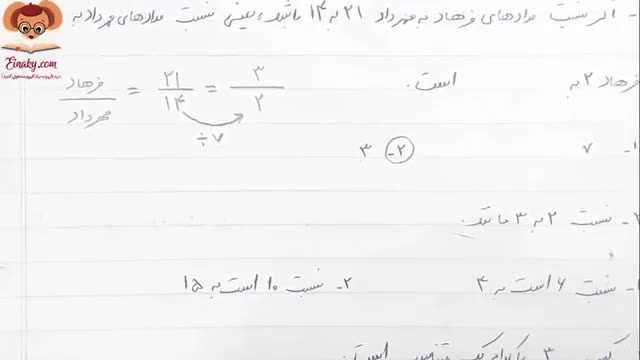 Einaky.com
- اگر نسبت مدادهای فرهاد به مهرداد ۲۱ به ۱۴ باشد، یعنی نسبت مدادهای مهرداد به
فرهاد ۲ به است.
فرهاد / مهرداد = ۲۱ / ۱۴ = ۳ / ۲
÷۷
۱- ۷ ۲- ۳
۲- نسبت ۲ به ۳ مانند:
۱- نسبت ۶ است به ۴ ۲- نسبت ۱۰ است به ۱۵